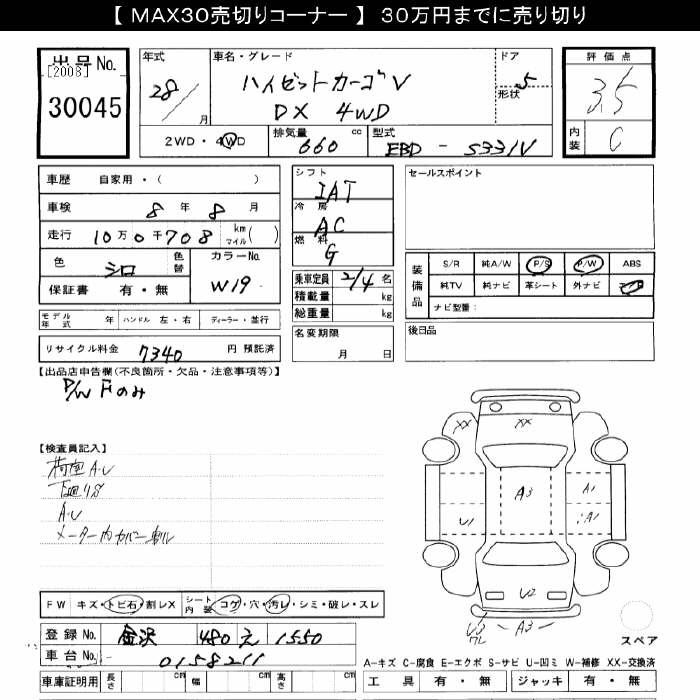 【 MAX30売切りコーナー 】 30万円までに売り切り
出品No.
[2008]
30045
年式
28 / 月
車名・グレード
ハイゼットカーゴV
DX 4WD
ドア
形状
5
評価点
3.5
内装
C
2WD・4WD
排気量
660 cc
型式
EBD - S331V
車歴 自家用・( )
車検 8 年 8 月
走行 10万0千708 km マイル( )
色 シロ 色替
カラーNo. W19
保証書 有・無
シフト
IAT
冷房
AC
燃料
G
乗車定員 2/4 名
積載量 kg
総重量 kg
セールスポイント
装備品
S/R 純A/W P/S P/W ABS
純TV 純ナビ 革シート 外ナビ
ナビ型番:
モデル年式 年 ハンドル 左・右 ディーラー・並行
リサイクル料金 7340 円 預託済
名変期限
月 日
後日品
【出品店申告欄(不良箇所・欠品・注意事項等)】
P/W Fのみ
【検査員記入】
荷室A・U
下廻りS
A・U
メーター内カバー割レ
XX XX
A3 A1
U1 A1
U2
A3
スペア
FW キズ・トビ石・割レX シート内装 コゲ・穴・汚レ・シミ・破レ・スレ
登録No. 金沢 480 え 1550
車台No. 0158211
車庫証明用 長さ cm 幅 cm 高さ cm
A-キズ C-腐食 E-エクボ S-サビ U-凹ミ W-補修 XX-交換済
工具 有・無 ジャッキ 有・無